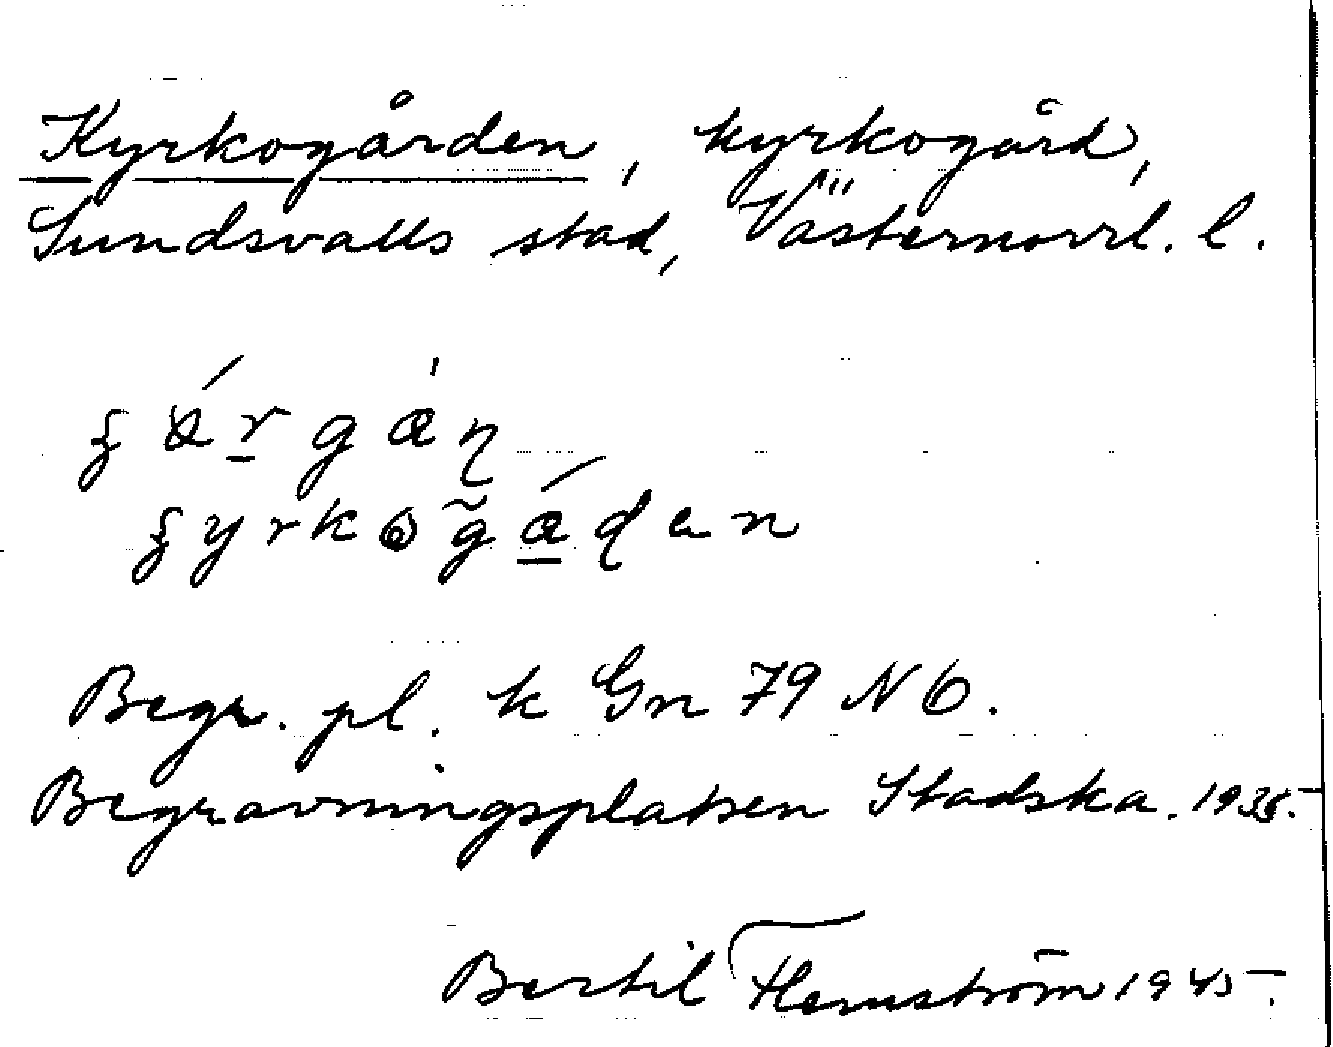 Kyrkogården, kyrkogård,
Sundsvalls stad, Västernorrl. l.
Begr. pl. k Gn 79 N 6.
Begravningsplatsen Stadska. 1938.
Bertil Flemström 1945.